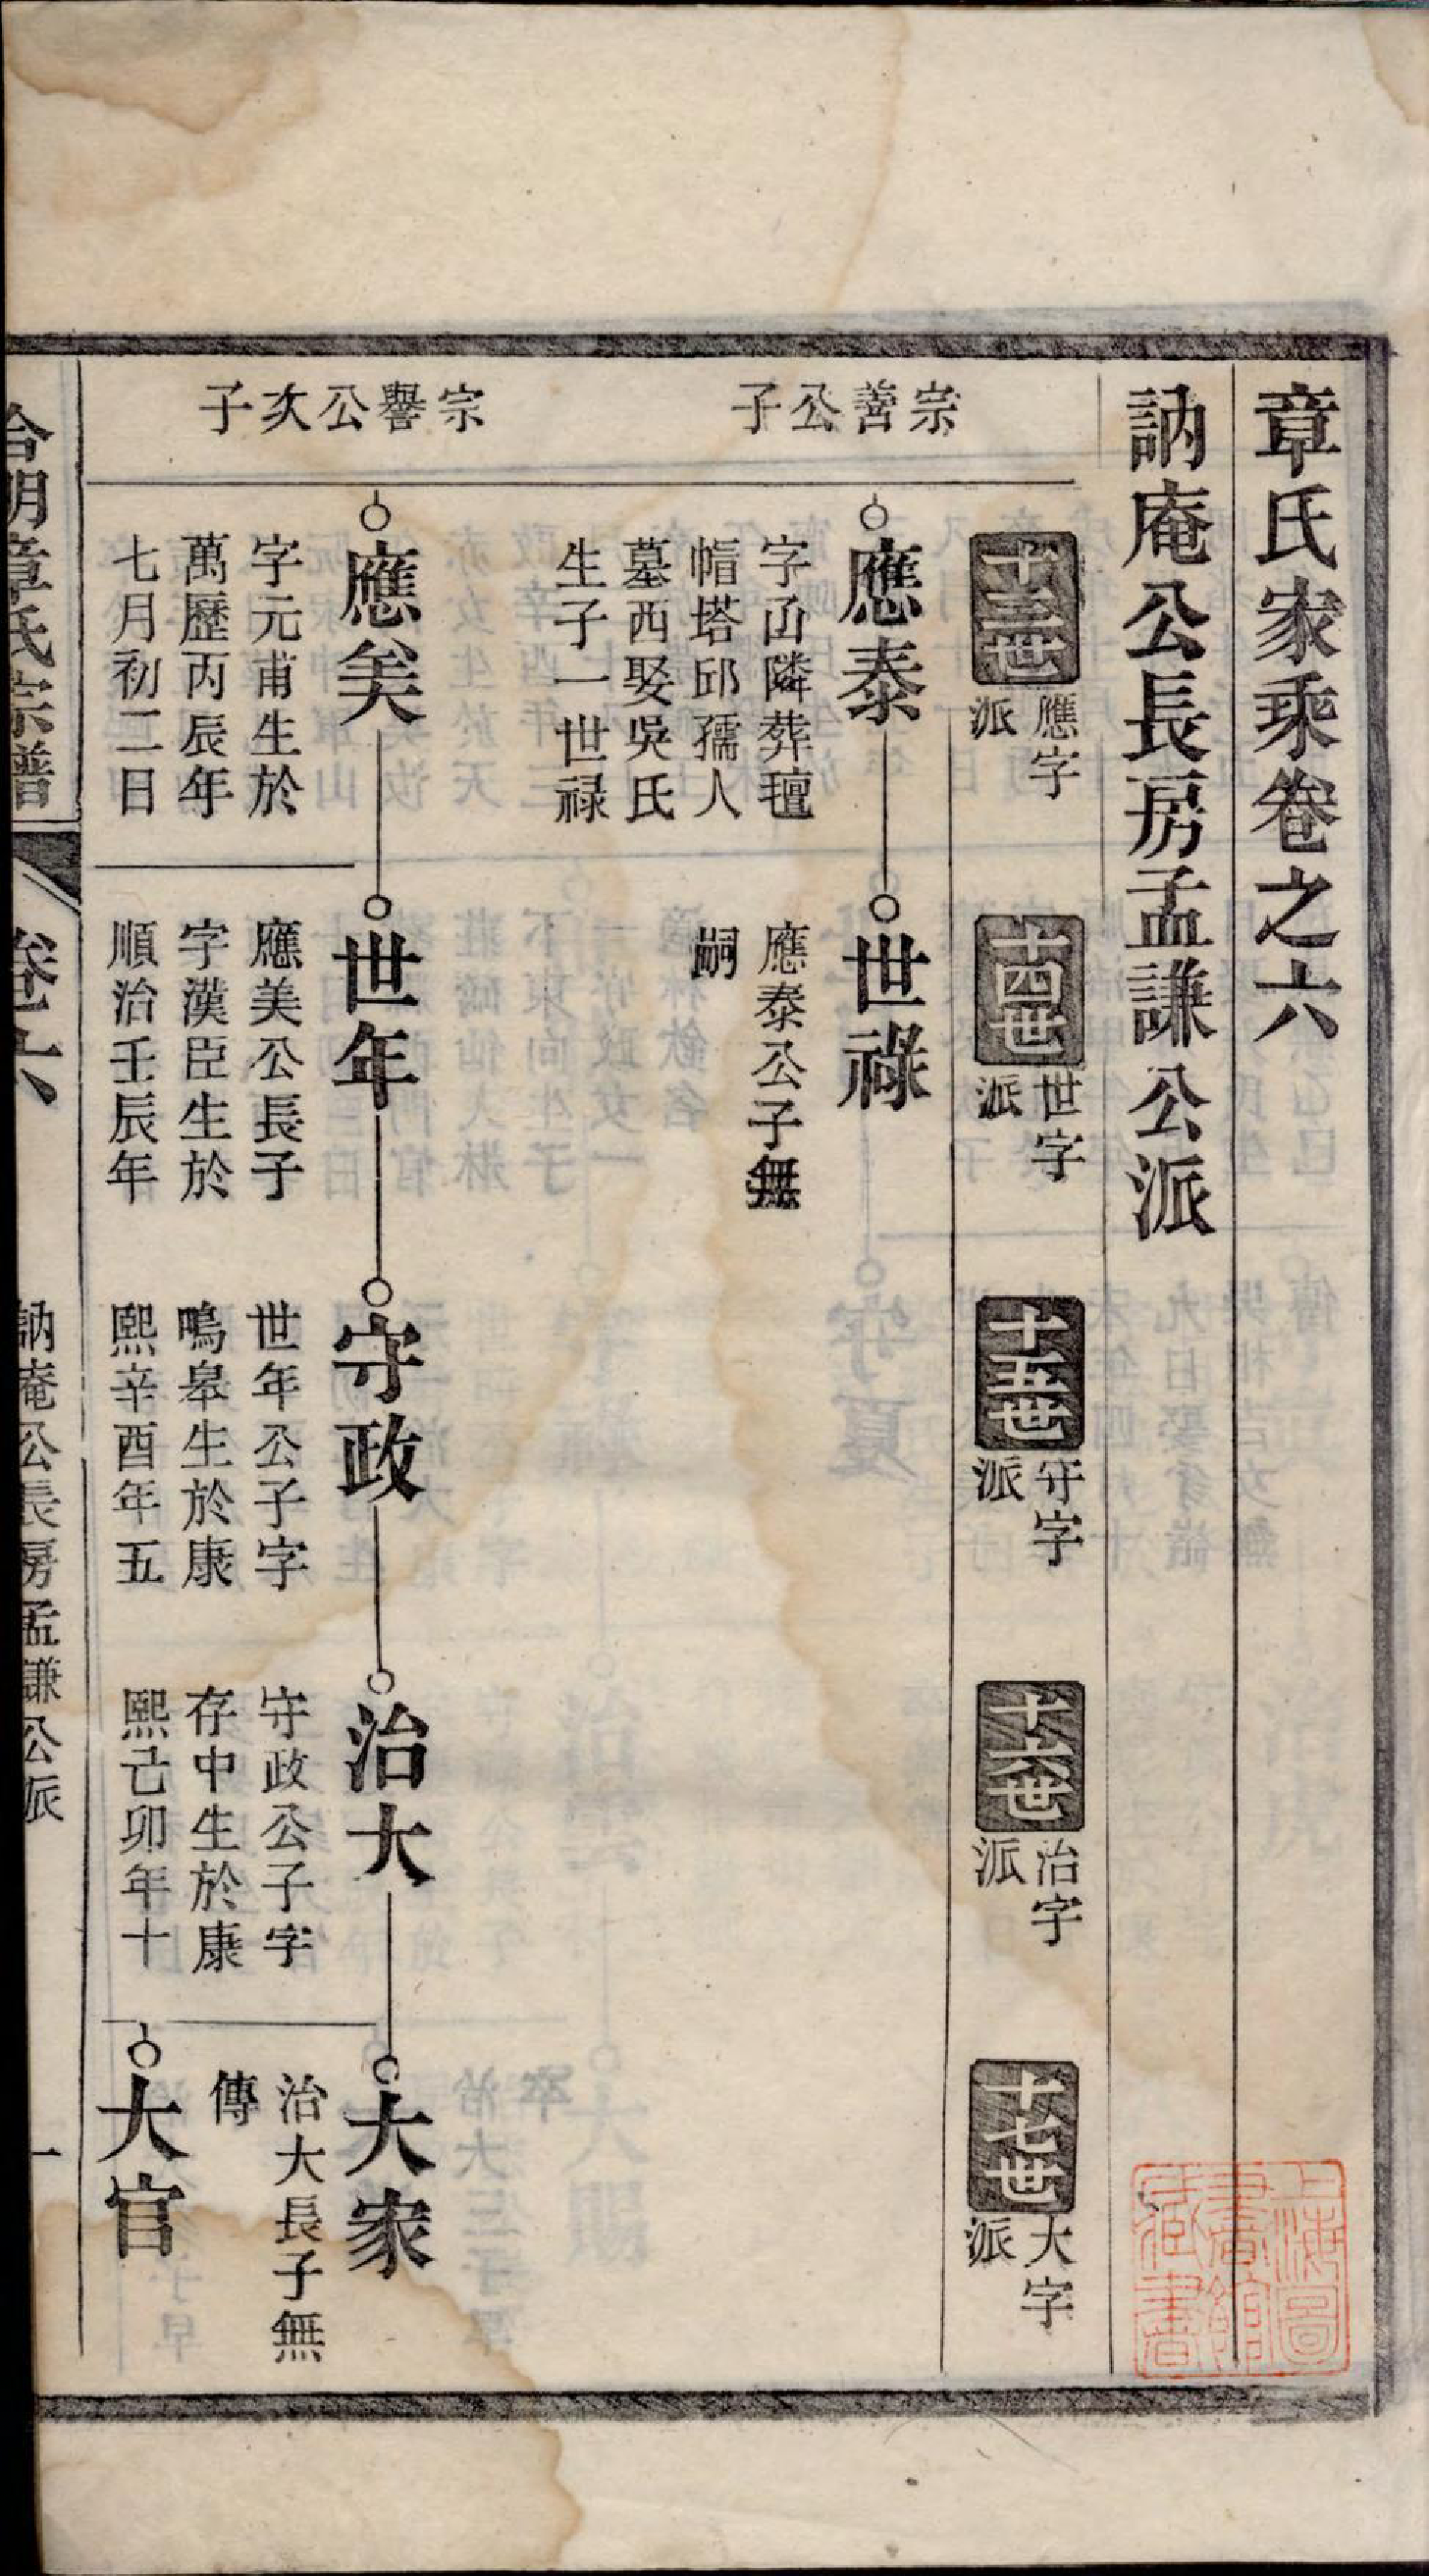 章氏家乘卷之六
訥庵公長房孟謙公派
十三世
應字
派
十四世
世字
派
十五世
守字
派
十六世
治字
派
十七世
大字
派
宗善公子
應泰
字峊隣葬璮
帽塔邱孺人
墓西娶吳氏
生子一世禄
世祿
應泰公子無
嗣
宗譽公次子
應美
字元甫生於
萬歷丙辰年
七月初二日
世年
應美公長子
字漢臣生於
順治壬辰年
守政
世年公子字
鳴皋生於康
熙辛酉年五
治大
守政公子字
存中生於康
熙己卯年十
大家
治大長子無
傳
大官
明章氏宗譜
卷六
訥庵公長房孟謙公派
一
上海圖
書館
藏書